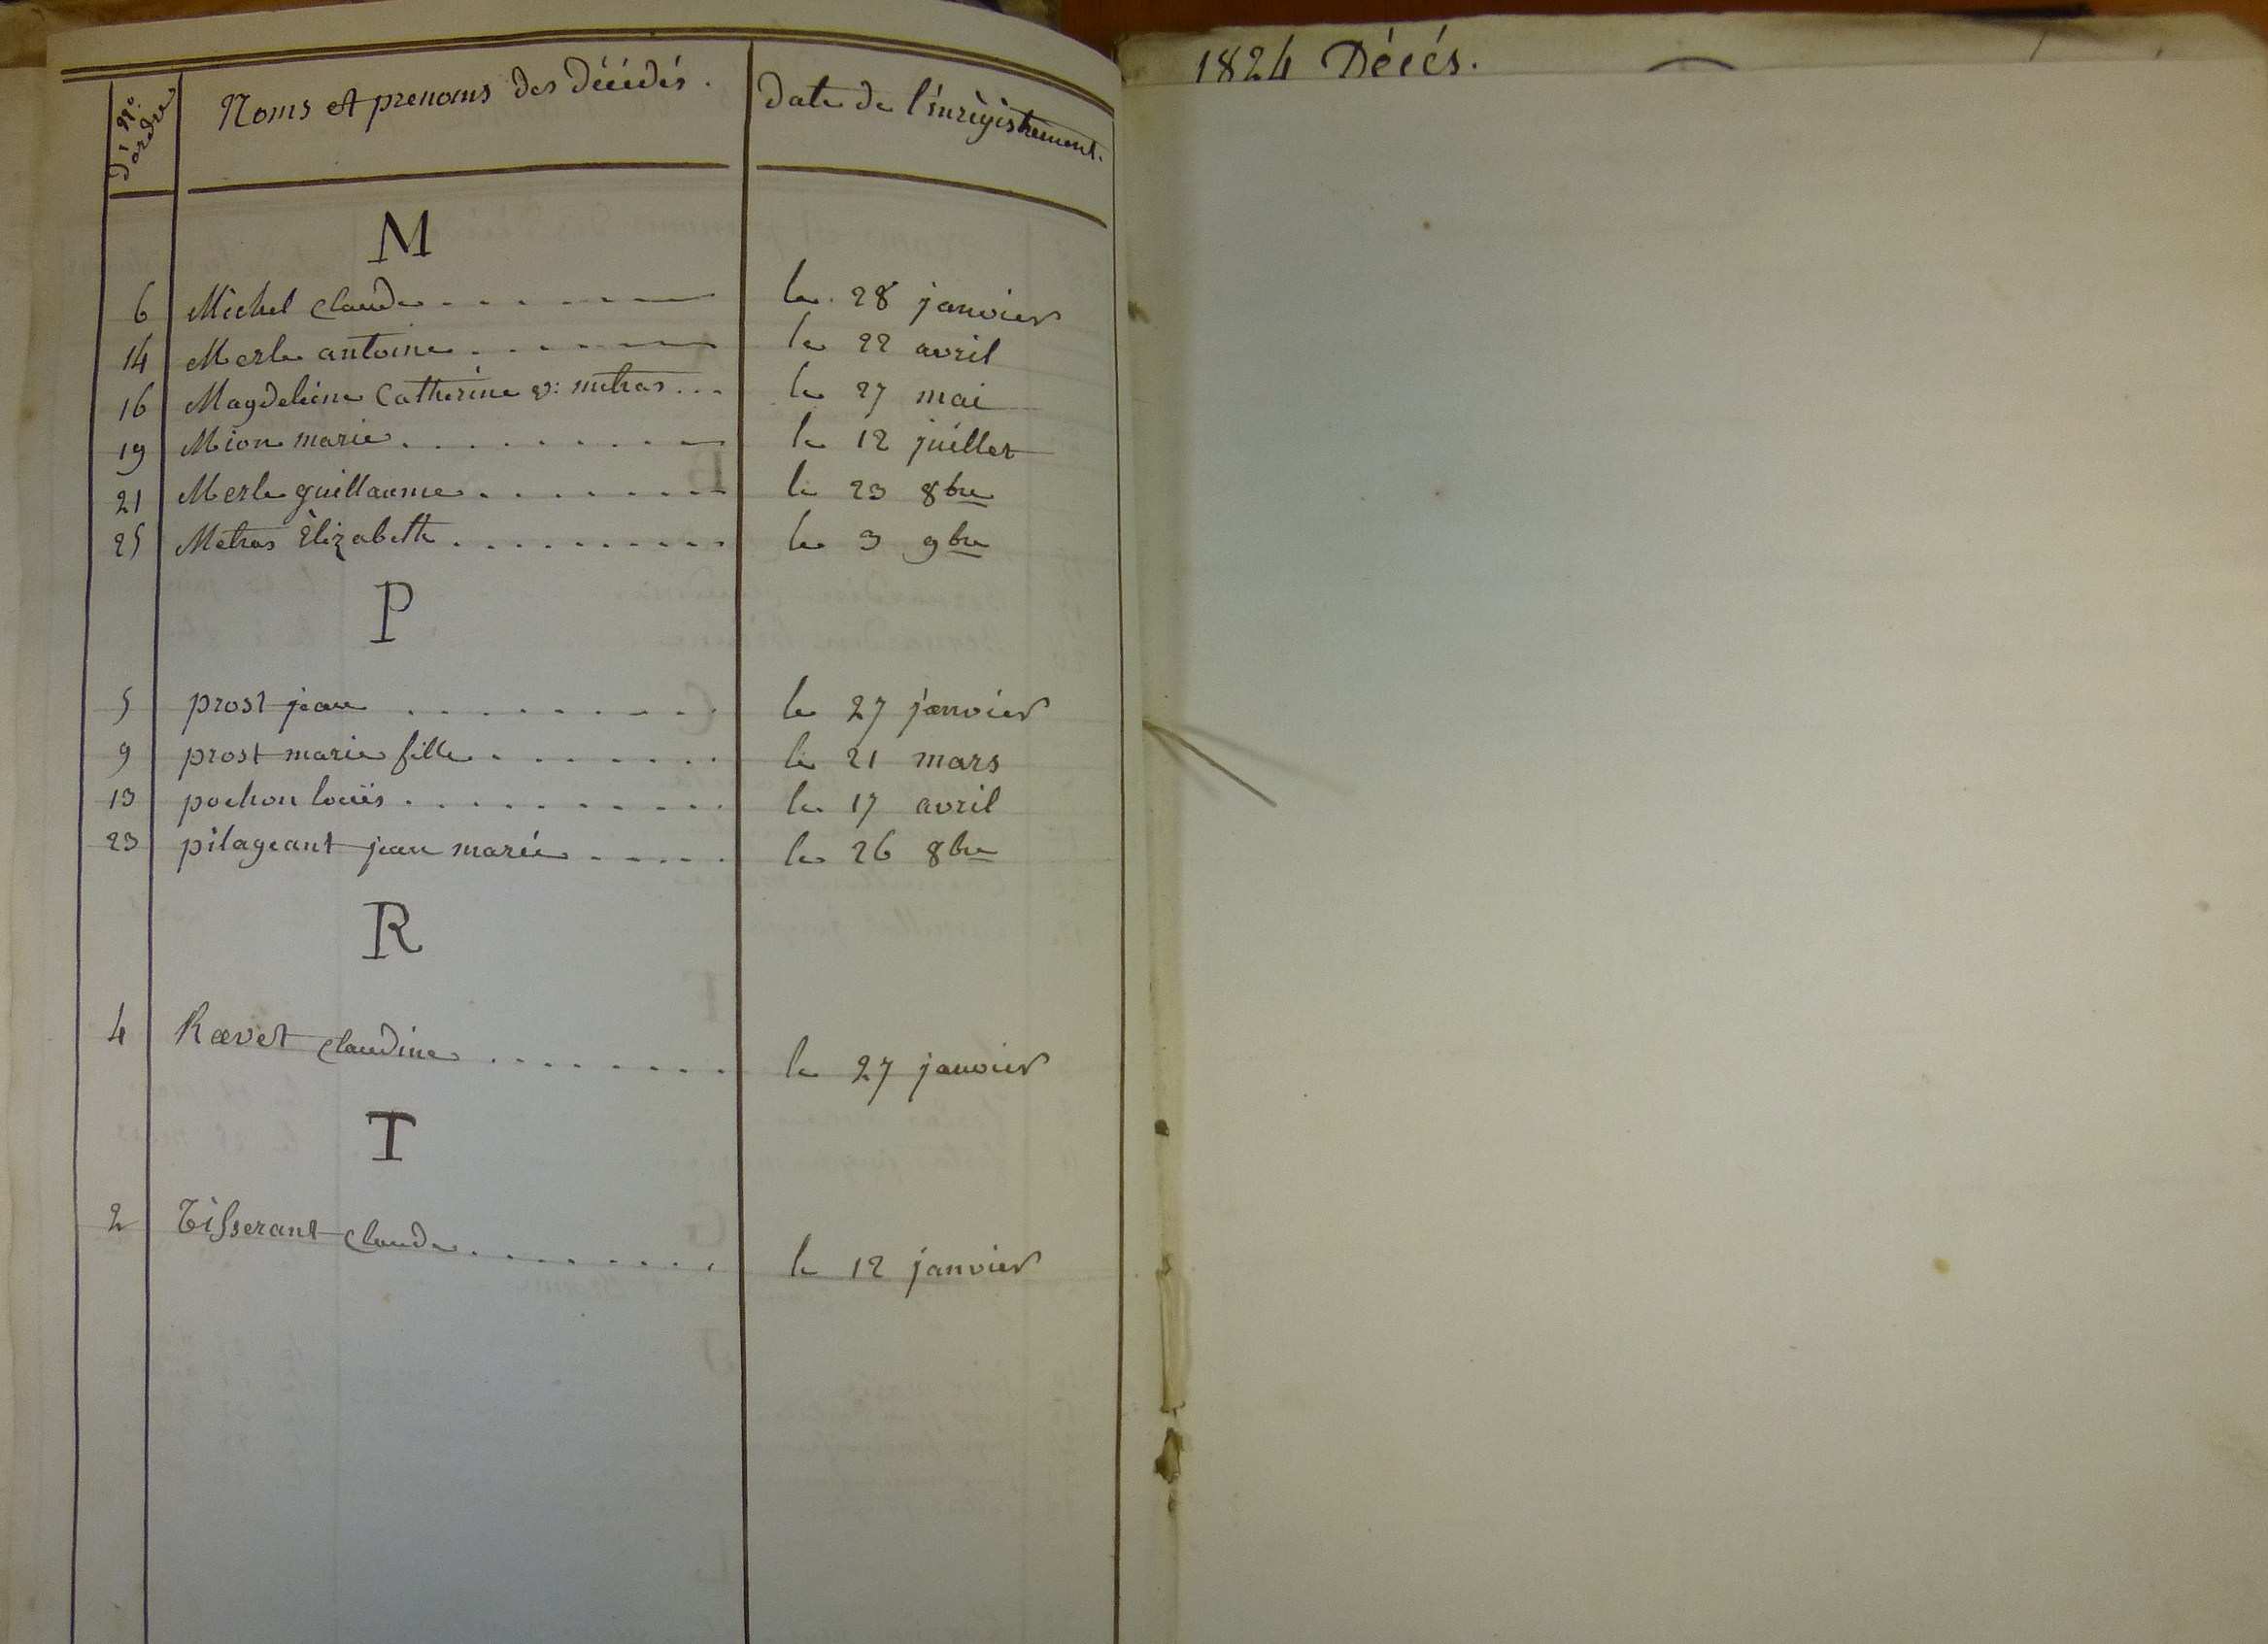 N° d'ordre
Noms et prenoms des Décédés. Date de l'enrègistrement.
M
6 Michel Claude le 28 janvier
14 Merle antoine le 22 avril
16 Magdeleine Catherine v: metras le 27 mai
19 Mion marie le 12 juillet
21 Merle guillaume le 23 8bre
25 Metras Èlizabeth le 3 9bre
P
5 prost jean le 27 janvier
9 prost marie fille le 21 mars
13 pochon louis le 17 avril
23 pilageant jean marie le 26 8bre
R
4 Ravet Claudine le 27 janvier
T
2 Tisserant Claude le 12 janvier
1824 Décés.